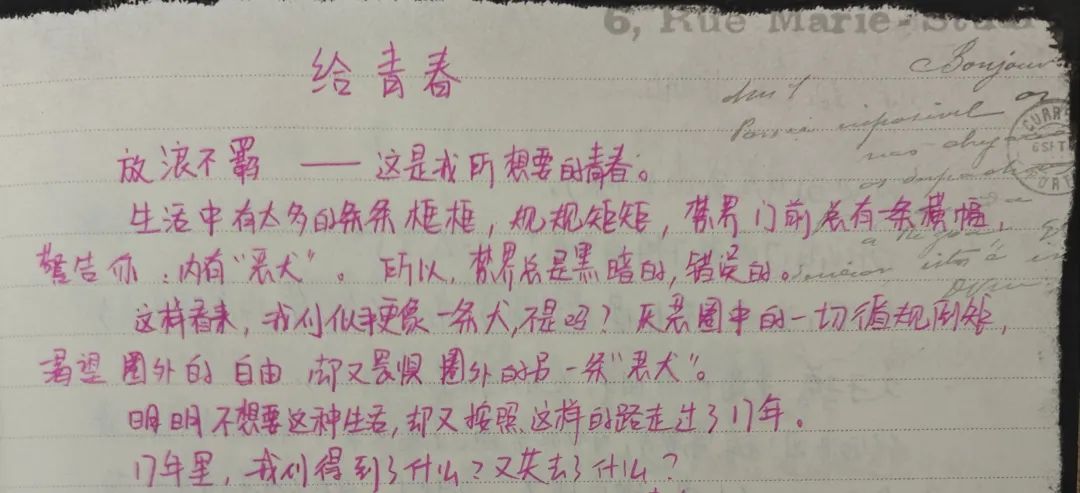 6, Rue Marie-Stua
Bonjour
CURR
给青春
放浪不羁 —— 这是我所想要的青春。
生活中有太多的条条框框，规规矩矩，禁界门前总有一条横幅，
警告你：内有“恶犬”。所以，禁界总是黑暗的，错误的。
这样看来，我们似乎更像一条犬，不是吗？厌恶圈中的一切循规蹈矩，
渴望圈外的自由 却又畏惧圈外的另一条“恶犬”。
明明不想要这种生活，却又按照这样的路走过了17年。
17年里，我们得到了什么？又失去了什么？